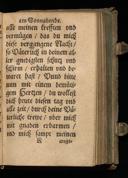 am Sonnabende.
alle meinen kreffen und
vermögen / das du mich
diese vergangene Nacht /
so Väterlich in deinem al-
ler gnedigsten schutz und
schirm / erhalten und be-
waret hast / Vnnd bitte
nun mit einem demüti-
gem Hertzen / du wollest
dich heute diesen tag und
alle zeit / durch deine Vä-
terliche trewe / uber mich
mit gnaden erbarmen /
und mich sampt meinen
K